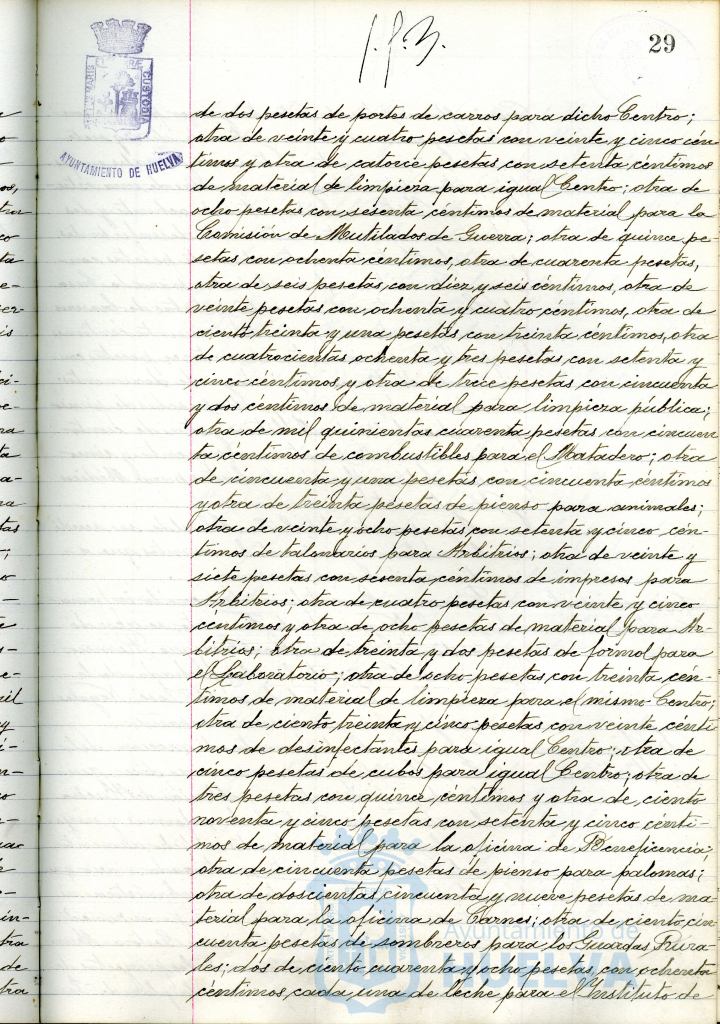 29
AYUNTAMIENTO DE HUELVA
de dos pesetas de portes de carros para dicho Centro;
otra de veinte y cuatro pesetas con veinte y cinco cén
timos y otra de catorce pesetas con setenta céntimos
de material de limpieza para igual Centro; otra de
ocho pesetas con sesenta céntimos de material para la
Comisión de Mutilados de Guerra; otra de quince pe
setas con ochenta céntimos, otra de cuarenta pesetas,
otra de seis pesetas con diez y seis céntimos, otra de
veinte pesetas con ochenta y cuatro céntimos, otra de
ciento treinta y una pesetas con treinta céntimos, otra
de cuatrocientas ochenta y tres pesetas con setenta y
cinco céntimos y otra de trece pesetas con cincuenta
y dos céntimos de material para limpieza pública;
otra de mil quinientas cuarenta pesetas con cincuen
ta céntimos de combustibles para el Matadero; otra
de cincuenta y una pesetas con cincuenta céntimos
y otra de treinta pesetas de pienso para animales;
otra de veinte y ocho pesetas con setenta y cinco cén-
timos de talonarios para Arbitrios; otra de veinte y
siete pesetas con sesenta céntimos de impresos para
Arbitrios; otra de cuatro pesetas con veinte y cinco
céntimos y otra de ocho pesetas de material para Ar-
bitrios; otra de treinta y dos pesetas de formol para
el Laboratorio; otra de ocho pesetas con treinta cén-
timos de material de limpieza para el mismo Centro;
otra de ciento treinta y cinco pesetas con veinte cénti
mos de desinfectantes para igual Centro; otra de
cinco pesetas de cubos para igual Centro; otra de
tres pesetas con quince céntimos y otra de ciento
noventa y cinco pesetas con setenta y cinco cénti-
mos de material para la oficina de Beneficencia;
otra de cincuenta pesetas de pienso para palomas;
otra de doscientas cincuenta y nueve pesetas de ma-
terial para la oficina de Carnes; otra de ciento cin
cuenta pesetas de sombreros para los Guardas Rura-
les; dos de ciento cuarenta y ocho pesetas con ochenta
céntimos cada una de leche para el Instituto de
Ayuntamiento de
HUELVA